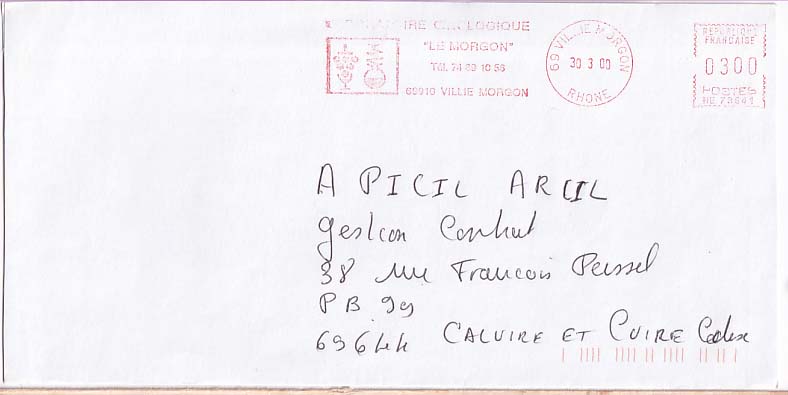 LABORATOIRE OENOLOGIQUE
"LE MORGON"
Tél. 74 69 10 56
69910 VILLIE MORGON
69 VILLIE MORGON
30 3 00
RHONE
REPUBLIQUE
FRANCAISE
0300
POSTES
A PICIL ARCIL
gestion Contrat
38 rue Francois Peissel
PB 99
69644 CALUIRE ET CUIRE Cedex